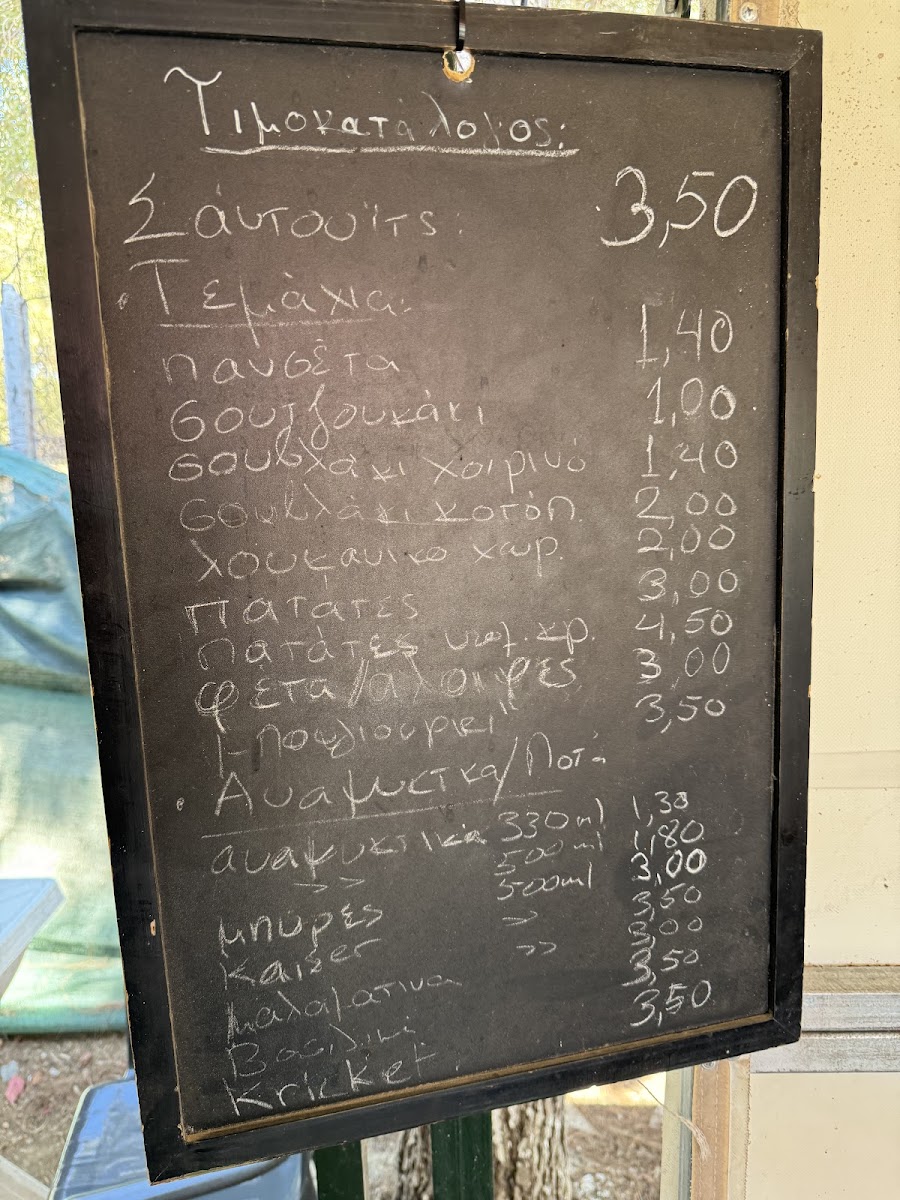 Τιμοκατάλογος:
Σάντουϊτς: 3,50
Τεμάχια:
πανσέτα 1,40
σουτζουκάκι 1,00
σουβλάκι χοιρινό 1,40
σουβλάκι κοτόπ. 2,00
λουκανικο χωρ. 2,00
πατάτες 3,00
πατάτες κρ. 4,50
φέτα/αλοιφές 3,00
Μπουγιουρντί 3,50
Αναψυκτκα/Ποτά
αναψυκτικά 330ml 1,30
>> 500ml 1,80
μπύρες 500ml 3,00
Kaiser >> 3,50
μαλαματινα >> 3,00
Βασιλική 3,50
Kricket 3,50